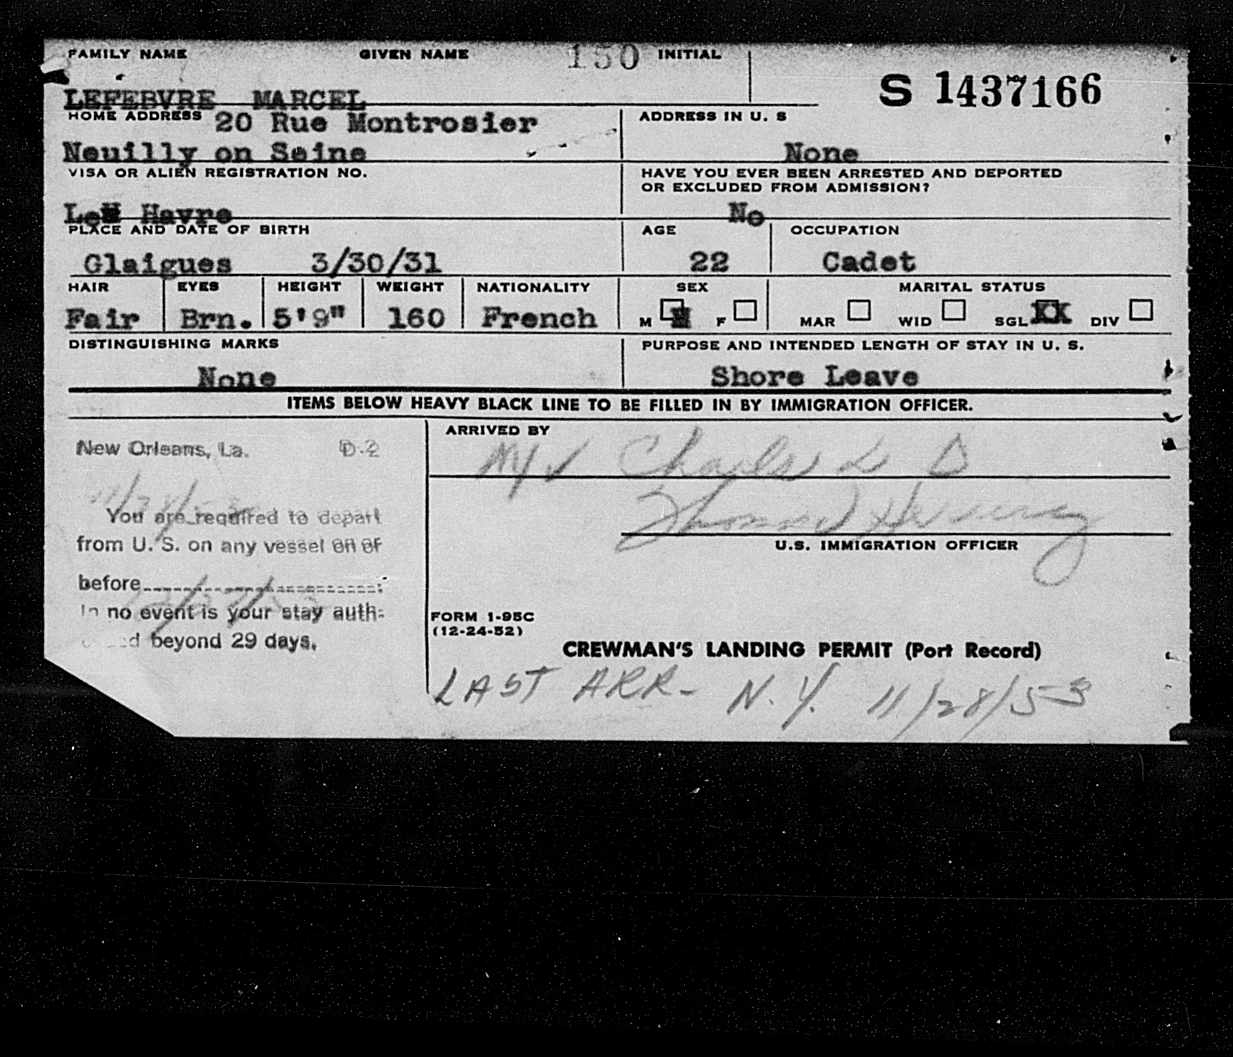 FAMILY NAME GIVEN NAME 150 INITIAL
S 1437166
LEFEBVRE MARCEL
HOME ADDRESS 20 Rue Montrosier
ADDRESS IN U. S
Neuilly on Seine
None
VISA OR ALIEN REGISTRATION NO.
HAVE YOU EVER BEEN ARRESTED AND DEPORTED
OR EXCLUDED FROM ADMISSION?
Le Havre
No
PLACE AND DATE OF BIRTH
AGE OCCUPATION
Glaigues 3/30/31
22 Cadet
HAIR EYES HEIGHT WEIGHT NATIONALITY
SEX MARITAL STATUS
Fair Brn. 5'9" 160 French
M F MAR WID SGL XX DIV
DISTINGUISHING MARKS
PURPOSE AND INTENDED LENGTH OF STAY IN U. S.
None
Shore Leave
ITEMS BELOW HEAVY BLACK LINE TO BE FILLED IN BY IMMIGRATION OFFICER.
New Orleans, La. D-2
You are required to depart
from U. S. on any vessel on or
before
In no event is your stay auth-
beyond 29 days.
ARRIVED BY
M/V Charles L D
U.S. IMMIGRATION OFFICER
FORM 1-95C
(12-24-52)
CREWMAN'S LANDING PERMIT (Port Record)
LAST ARR- N.Y. 11/28/53